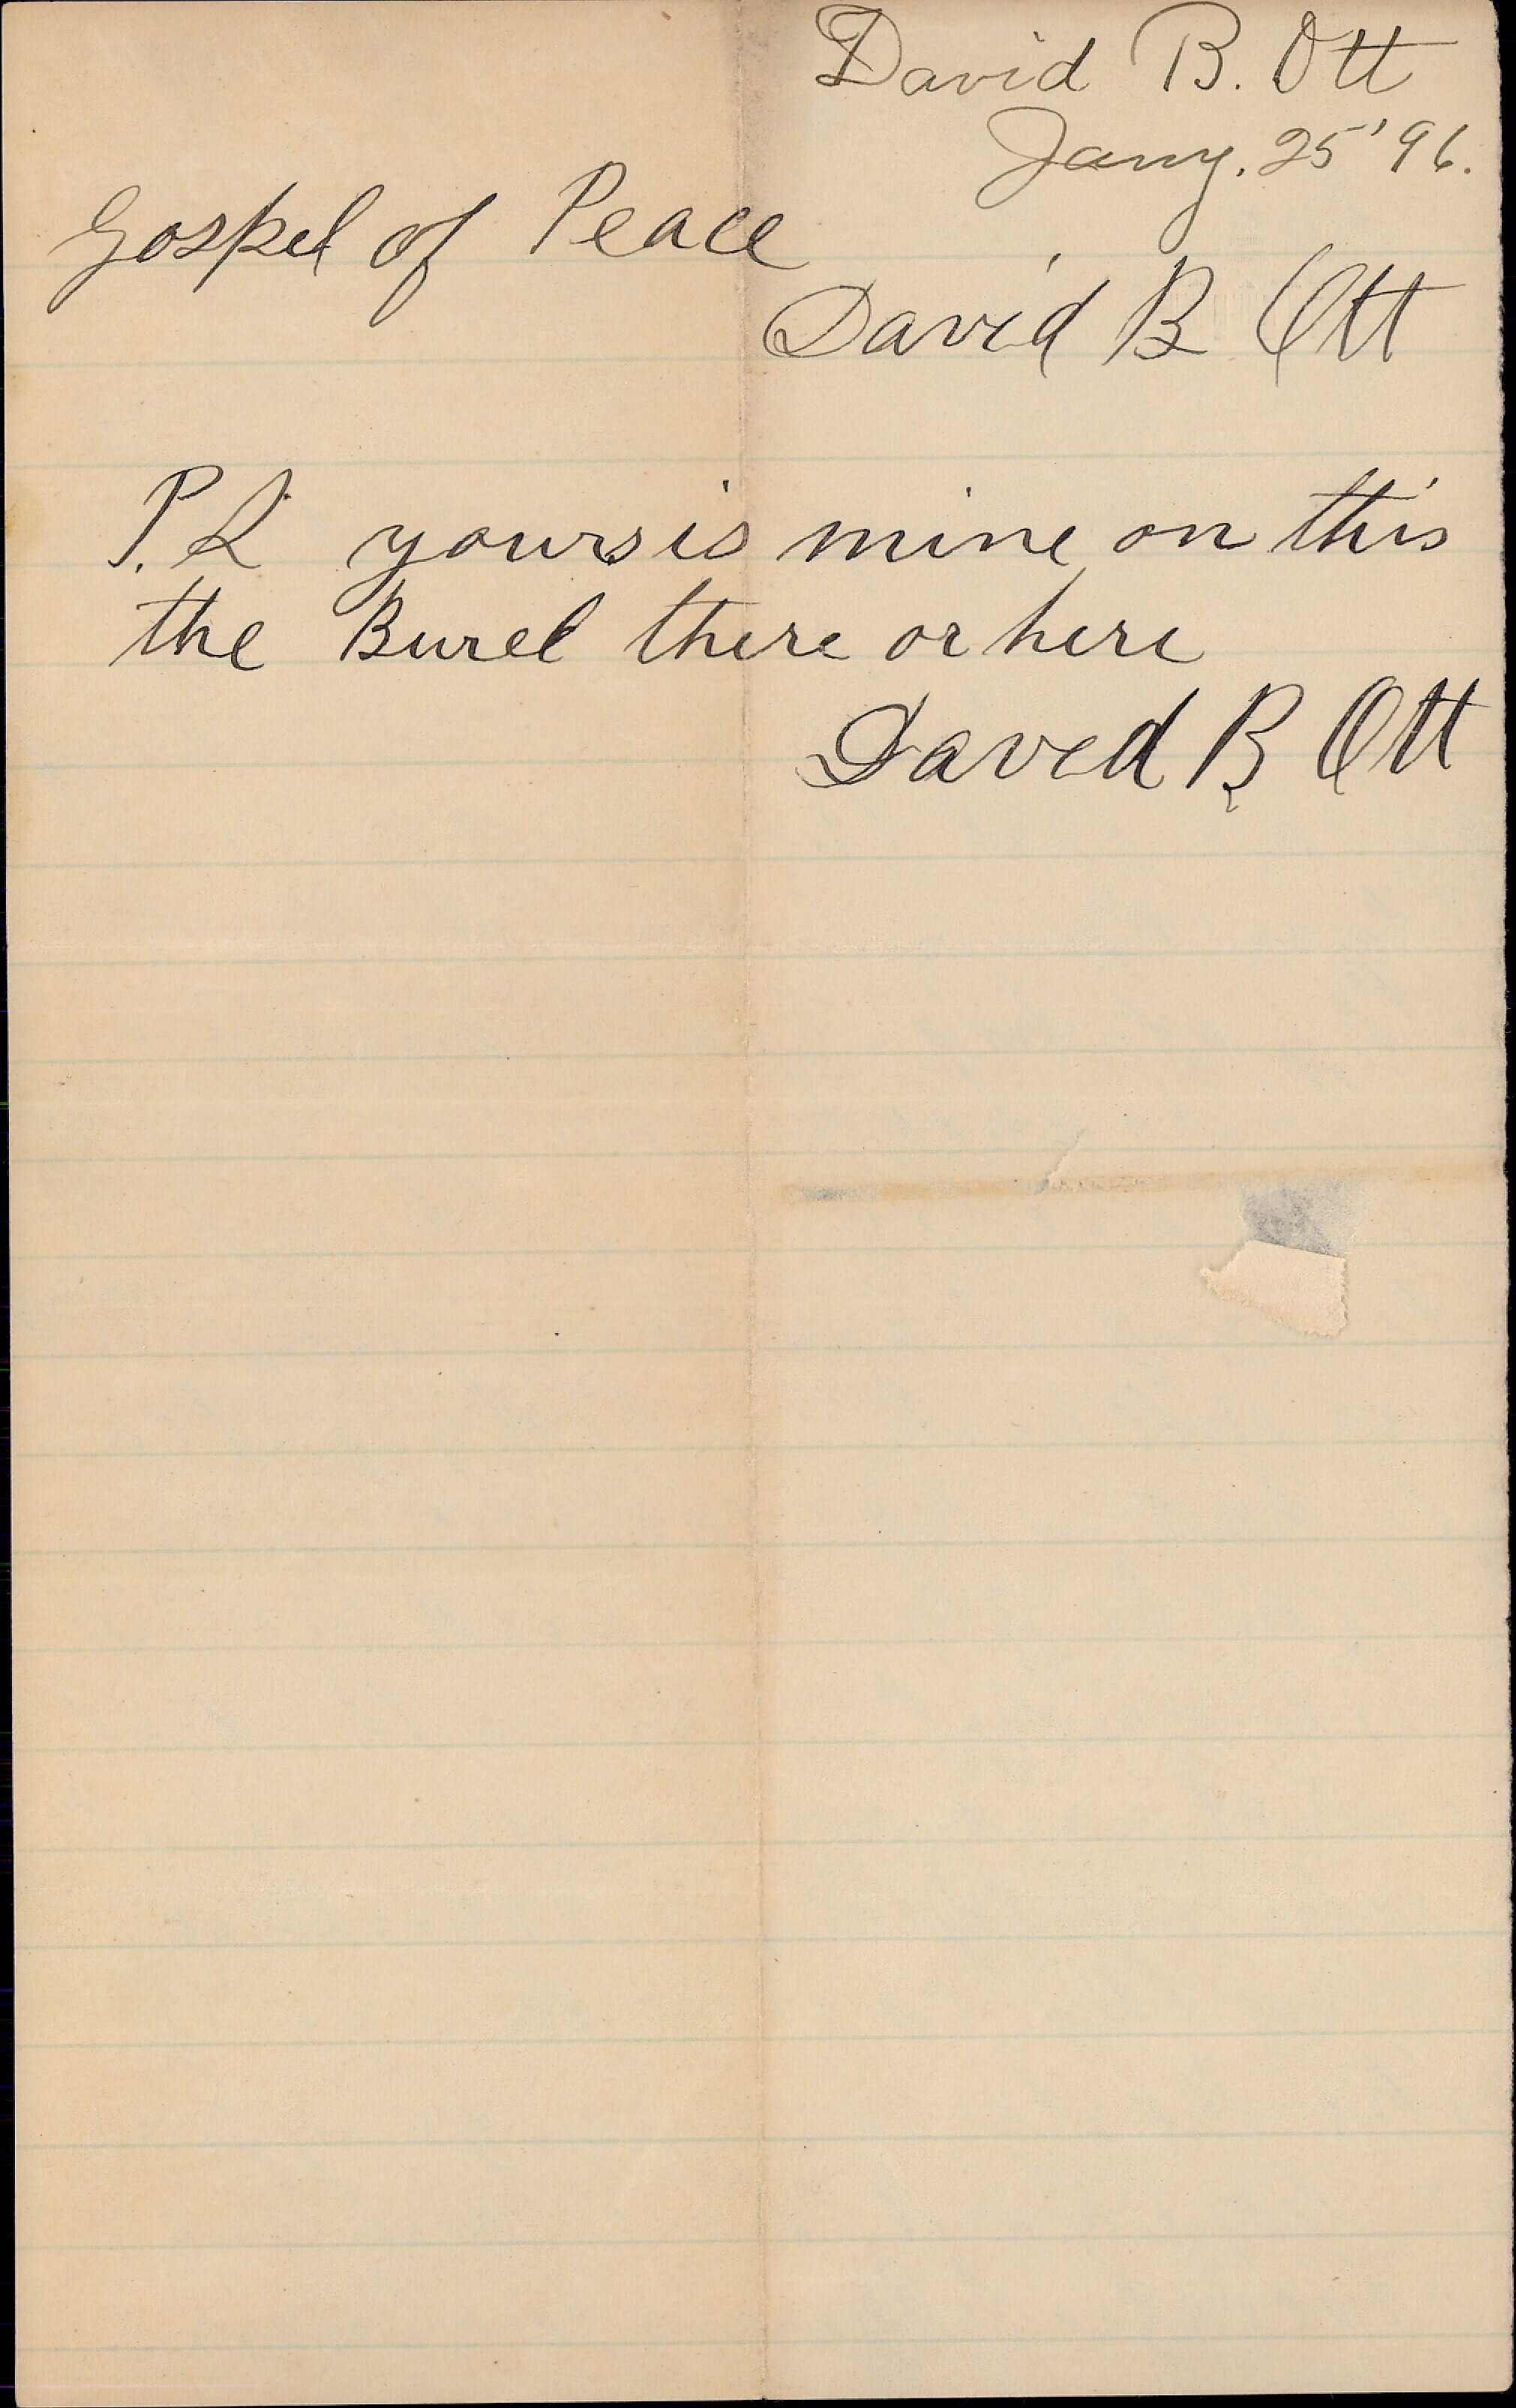 David B. Ott
Jany. 25 '96.
Gospel of Peace
David B Ott
P.S yours is mine on this
the Burel there or here
David B Ott